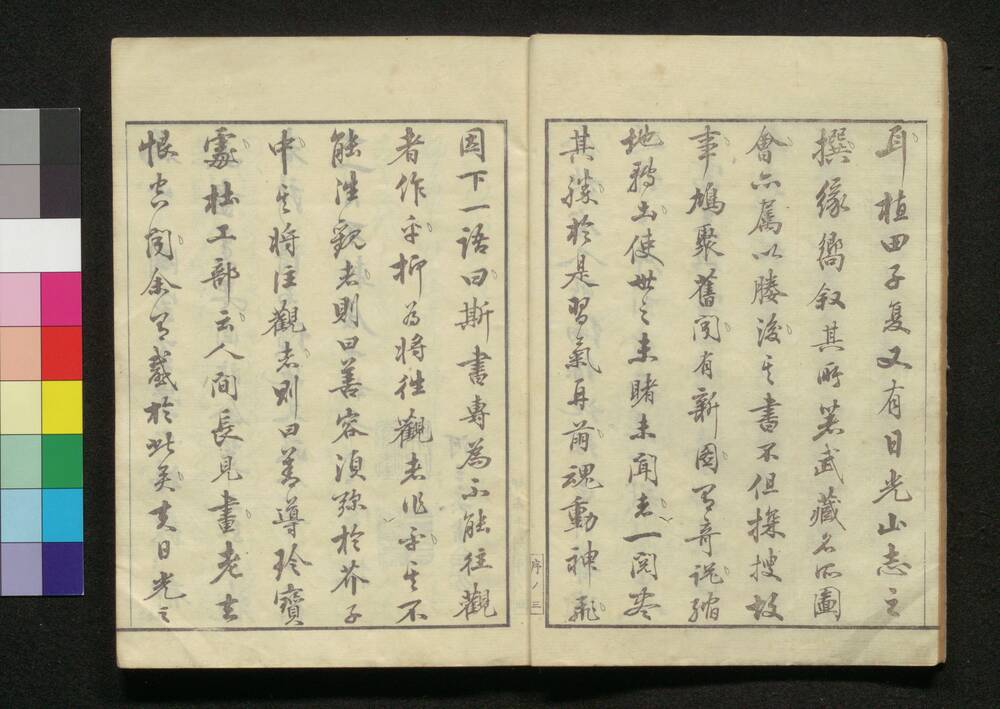 耳植田子夏又有日光山志之
撰緣嚮叙其所著武藏名所圖
會亦屬以賸後其書不但探搜故
事鳩聚舊聞有新圖有奇説縮
地移土使世之未睹未聞者一閲盡
其勝於是習氣再萌魂動神飛
序ノ三
因下一語曰斯書專為不能往觀
者作乎抑為將往觀者作乎其不
能往觀者則曰善容須弥於芥子
中其將往觀者則曰善導珍寶
處杜工部云人間長見畫老去
恨空聞余有感於此矣夫日光之